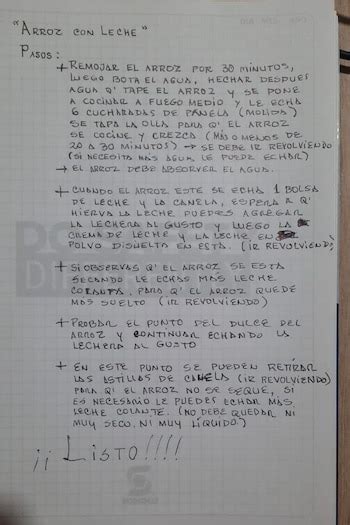 "Arroz con Leche"
Pasos:
+ Remojar el arroz por 30 minutos,
luego bota el agua, hechar despues
agua q' tape el arroz y se pone
a cocinar a fuego medio y le echa
6 cucharadas de panela (molida)
se tapa la olla para q' el arroz
se cocine y crezca (más o menos de
20 a 30 minutos) → se debe ir revolviendo
(si necesita mas agua le puede echar)
→ el arroz debe absorver el agua.
+ Cuando el arroz este se echa 1 bolsa
de leche y la canela, espera a q'
hierva la leche puedes agregar
la lechera al gusto y luego la
crema de leche y la leche en
polvo disuelta en esta. (ir revolviendo)
+ Si observas q' el arroz se esta
secando le echas mas leche
colanta, para q' el arroz quede
mas suelto (ir revolviendo)
+ Probar el punto del dulce del
arroz y continuar echando la
lechera al gusto
+ En este punto se pueden retirar
las astillas de canela (ir revolviendo)
para q' el arroz no se seque, si
es necesario le puedes echar mas
leche colante. (no debe quedar ni
muy seco, ni muy líquido.)
¡¡ Listo!!!!